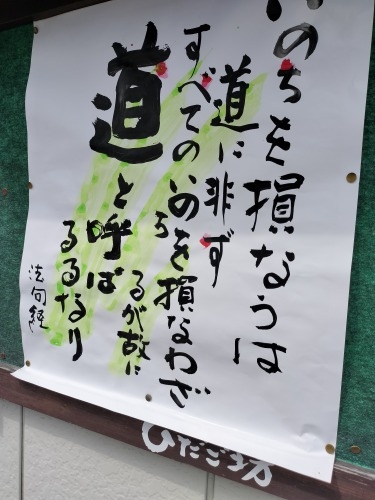 いのちを損なうは
道に非ず
すべてのいのちを損なわざ
るが故に
道と呼ば
るるなり
法句経
ひだご坊